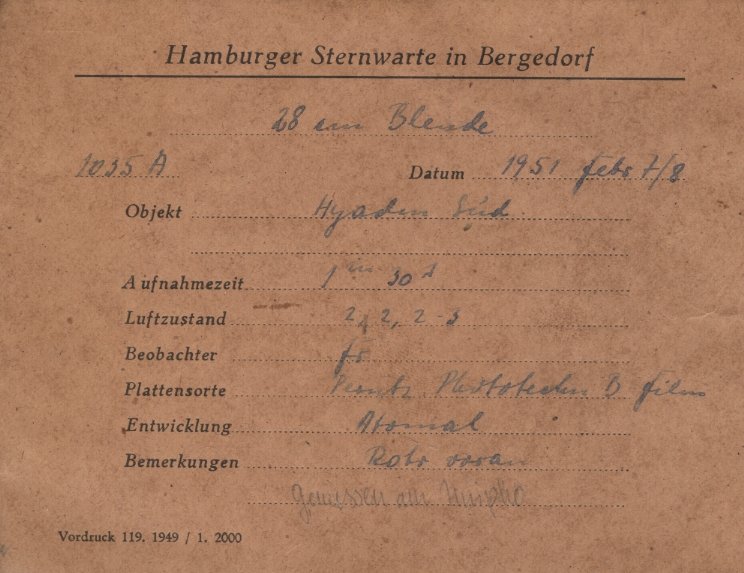 Hamburger Sternwarte in Bergedorf
28 cm Blende
1035 A Datum 1951 Febr 7/8
Objekt Hyaden Süd
Aufnahmezeit 1 m 30 s
Luftzustand 2, 2, 2-3
Beobachter fr
Plattensorte Perutz Phototechn B Film
Entwicklung Atomal
Bemerkungen Rohr voran
Gemessen am
Vordruck 119. 1949 / 1. 2000